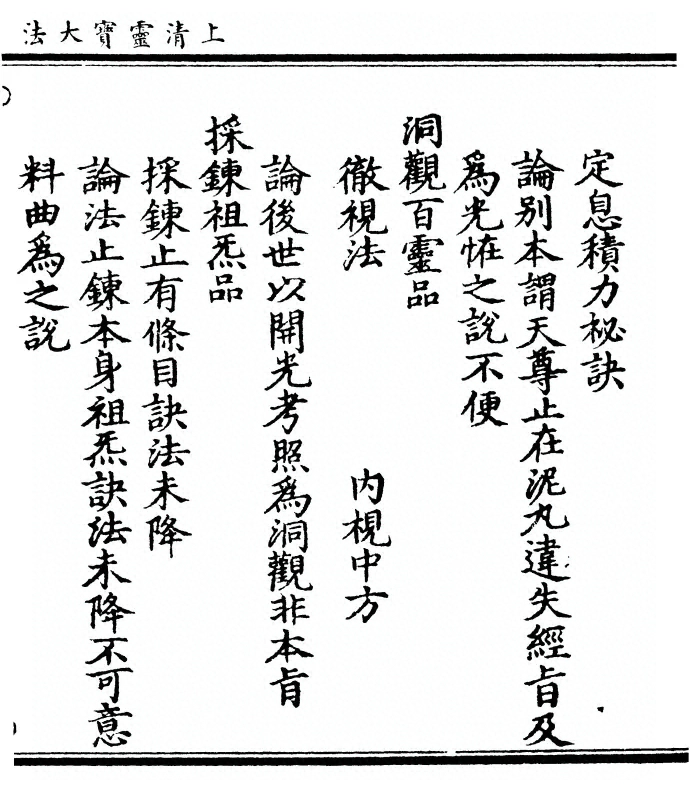 上清靈寶大法
定息積力秘訣
論別本謂天尊止在泥丸違失經旨及
爲光恠之說不便
洞觀百靈品
徹視法 內視中方
論後世以開光考照爲洞觀非本旨
採鍊祖炁品
採鍊止有條目訣法未降
論法止鍊本身祖炁訣法未降不可意
料曲爲之說